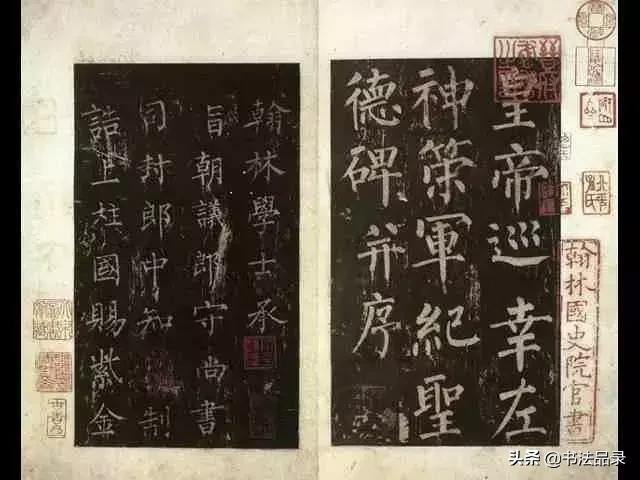 皇帝巡幸左
神策軍紀聖
德碑并序
翰林學士承
旨朝議郎守尚書
司封郎中知制
誥上柱國賜紫金
翰林國史院官書
头条 @书法品录